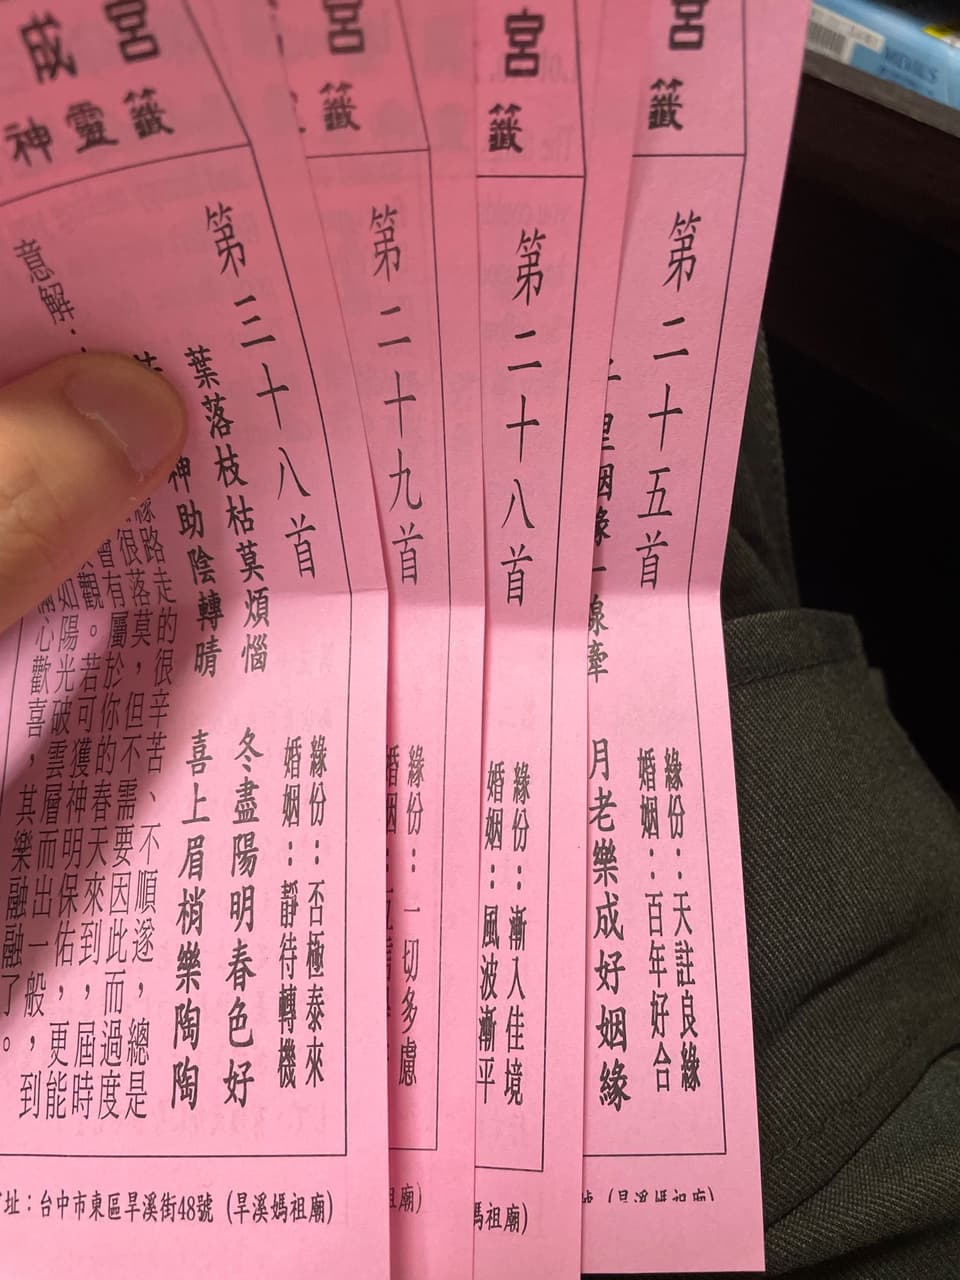 宮
籤
第二十五首
緣份：天註良緣
婚姻：百年好合
里姻緣一線牽
月老樂成好姻緣
號（旱溪媽祖廟）
宮
籤
第二十八首
緣份：漸入佳境
婚姻：風波漸平
媽祖廟）
宮
籤
第二十九首
緣份：一切多慮
婚姻：
祖廟）
成宮
神靈籤
第三十八首
緣份：否極泰來
婚姻：靜待轉機
葉落枝枯莫煩惱
冬盡陽明春色好
神助陰轉晴
喜上眉梢樂陶陶
意解：
緣路走的很辛苦、不順遂，總是
很落莫，但不需要因此而過度
會有屬於你的春天來到，屆時
觀。若可獲神明保佑，更能
如陽光破雲層而出一般，到
滿心歡喜，其樂融融了。
址：台中市東區旱溪街48號（旱溪媽祖廟）